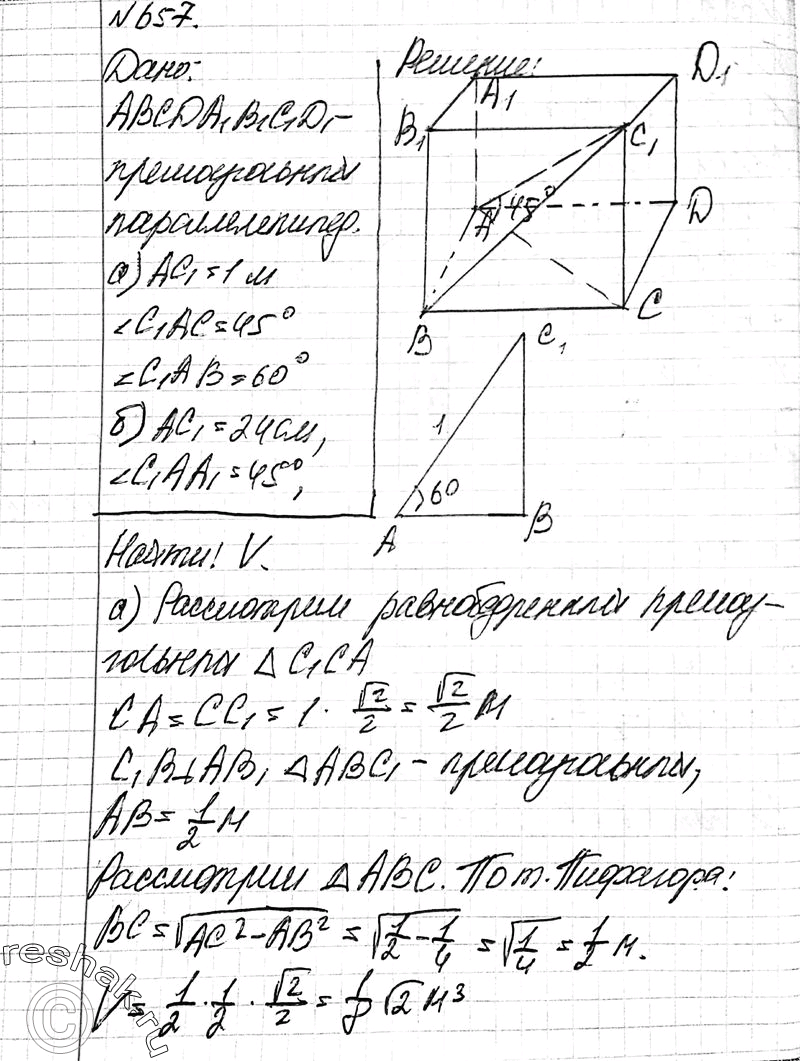 №657.
Дано:
ABCDA₁B₁C₁D₁-
прямоугольный
параллелепипед.
а) AC₁=1 м
∠C₁AC=45°
∠C₁AB=60°
б) AC₁=24см,
∠C₁AA₁=45°,
Решение:
A₁
D₁
B₁
C₁
A
45°
D
B
C
C₁
1
60
A
B
Найти: V.
а) Рассмотрим равнобедренный прямоу-
гольный △ C₁CA
CA = CC₁ = 1 · √2/2 = √2/2 м
C₁B⊥AB, △ABC₁ - прямоугольный,
AB = 1/2 м
Рассмотрим △ABC. По т. Пифагора:
BC = √(AC² - AB²) = √(1/2 - 1/4) = √(1/4) = 1/2 м.
V = 1/2 · 1/2 · √2/2 = 1/8 √2 м³
reshak.ru
©